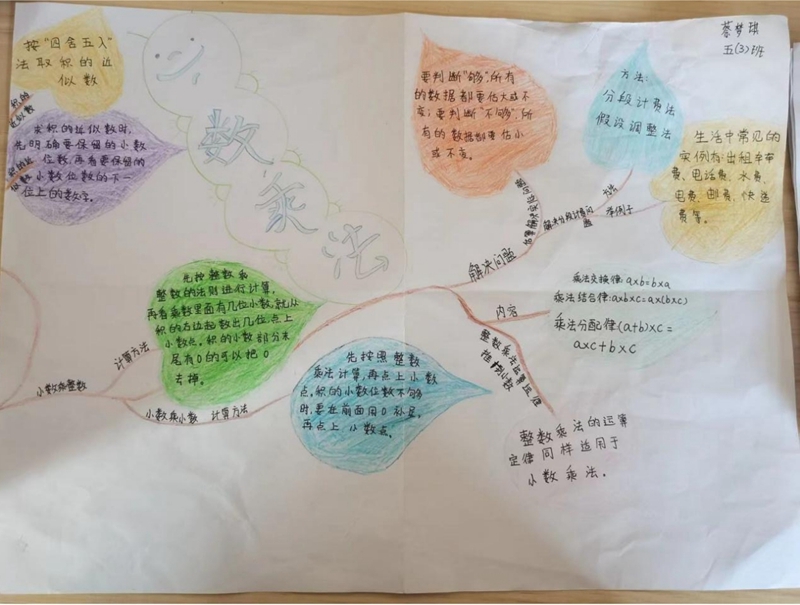 蔡梦琪
五(3)班
按“四舍五入”
法取积的近
似数
求积的近似数时,
先明确要保留的小数
位数,再看要保留的
小数位数的下一
位上的数字。
数乘法
要判断“够”,所有
的数据都要估大或不
变;要判断“不够”,所
有的数据都要估小
或不变。
方法:
分段计费法
假设调整法
生活中常见的
实例有出租车车
费、电话费、水费、
电费、邮费、快递
费等。
解决问题
方法
举例子
先按整数乘
整数的法则进行计算,
再看乘数里面有几位小数,就从
积的右边起数出几位,点上
小数点。积的小数部分末
尾有0的可以把0
去掉。
计算方法
小数乘整数
小数乘小数 计算方法
先按照整数
乘法计算,再点上小数
点,积的小数位数不够
时,要在前面用0补足,
再点上小数点。
内容
乘法交换律:a×b=b×a
乘法结合律:a×b×c=a×(b×c)
乘法分配律(a+b)×c=
a×c+b×c
整数乘法运算定律
推广到小数
整数乘法的运算
定律同样适用于
小数乘法。